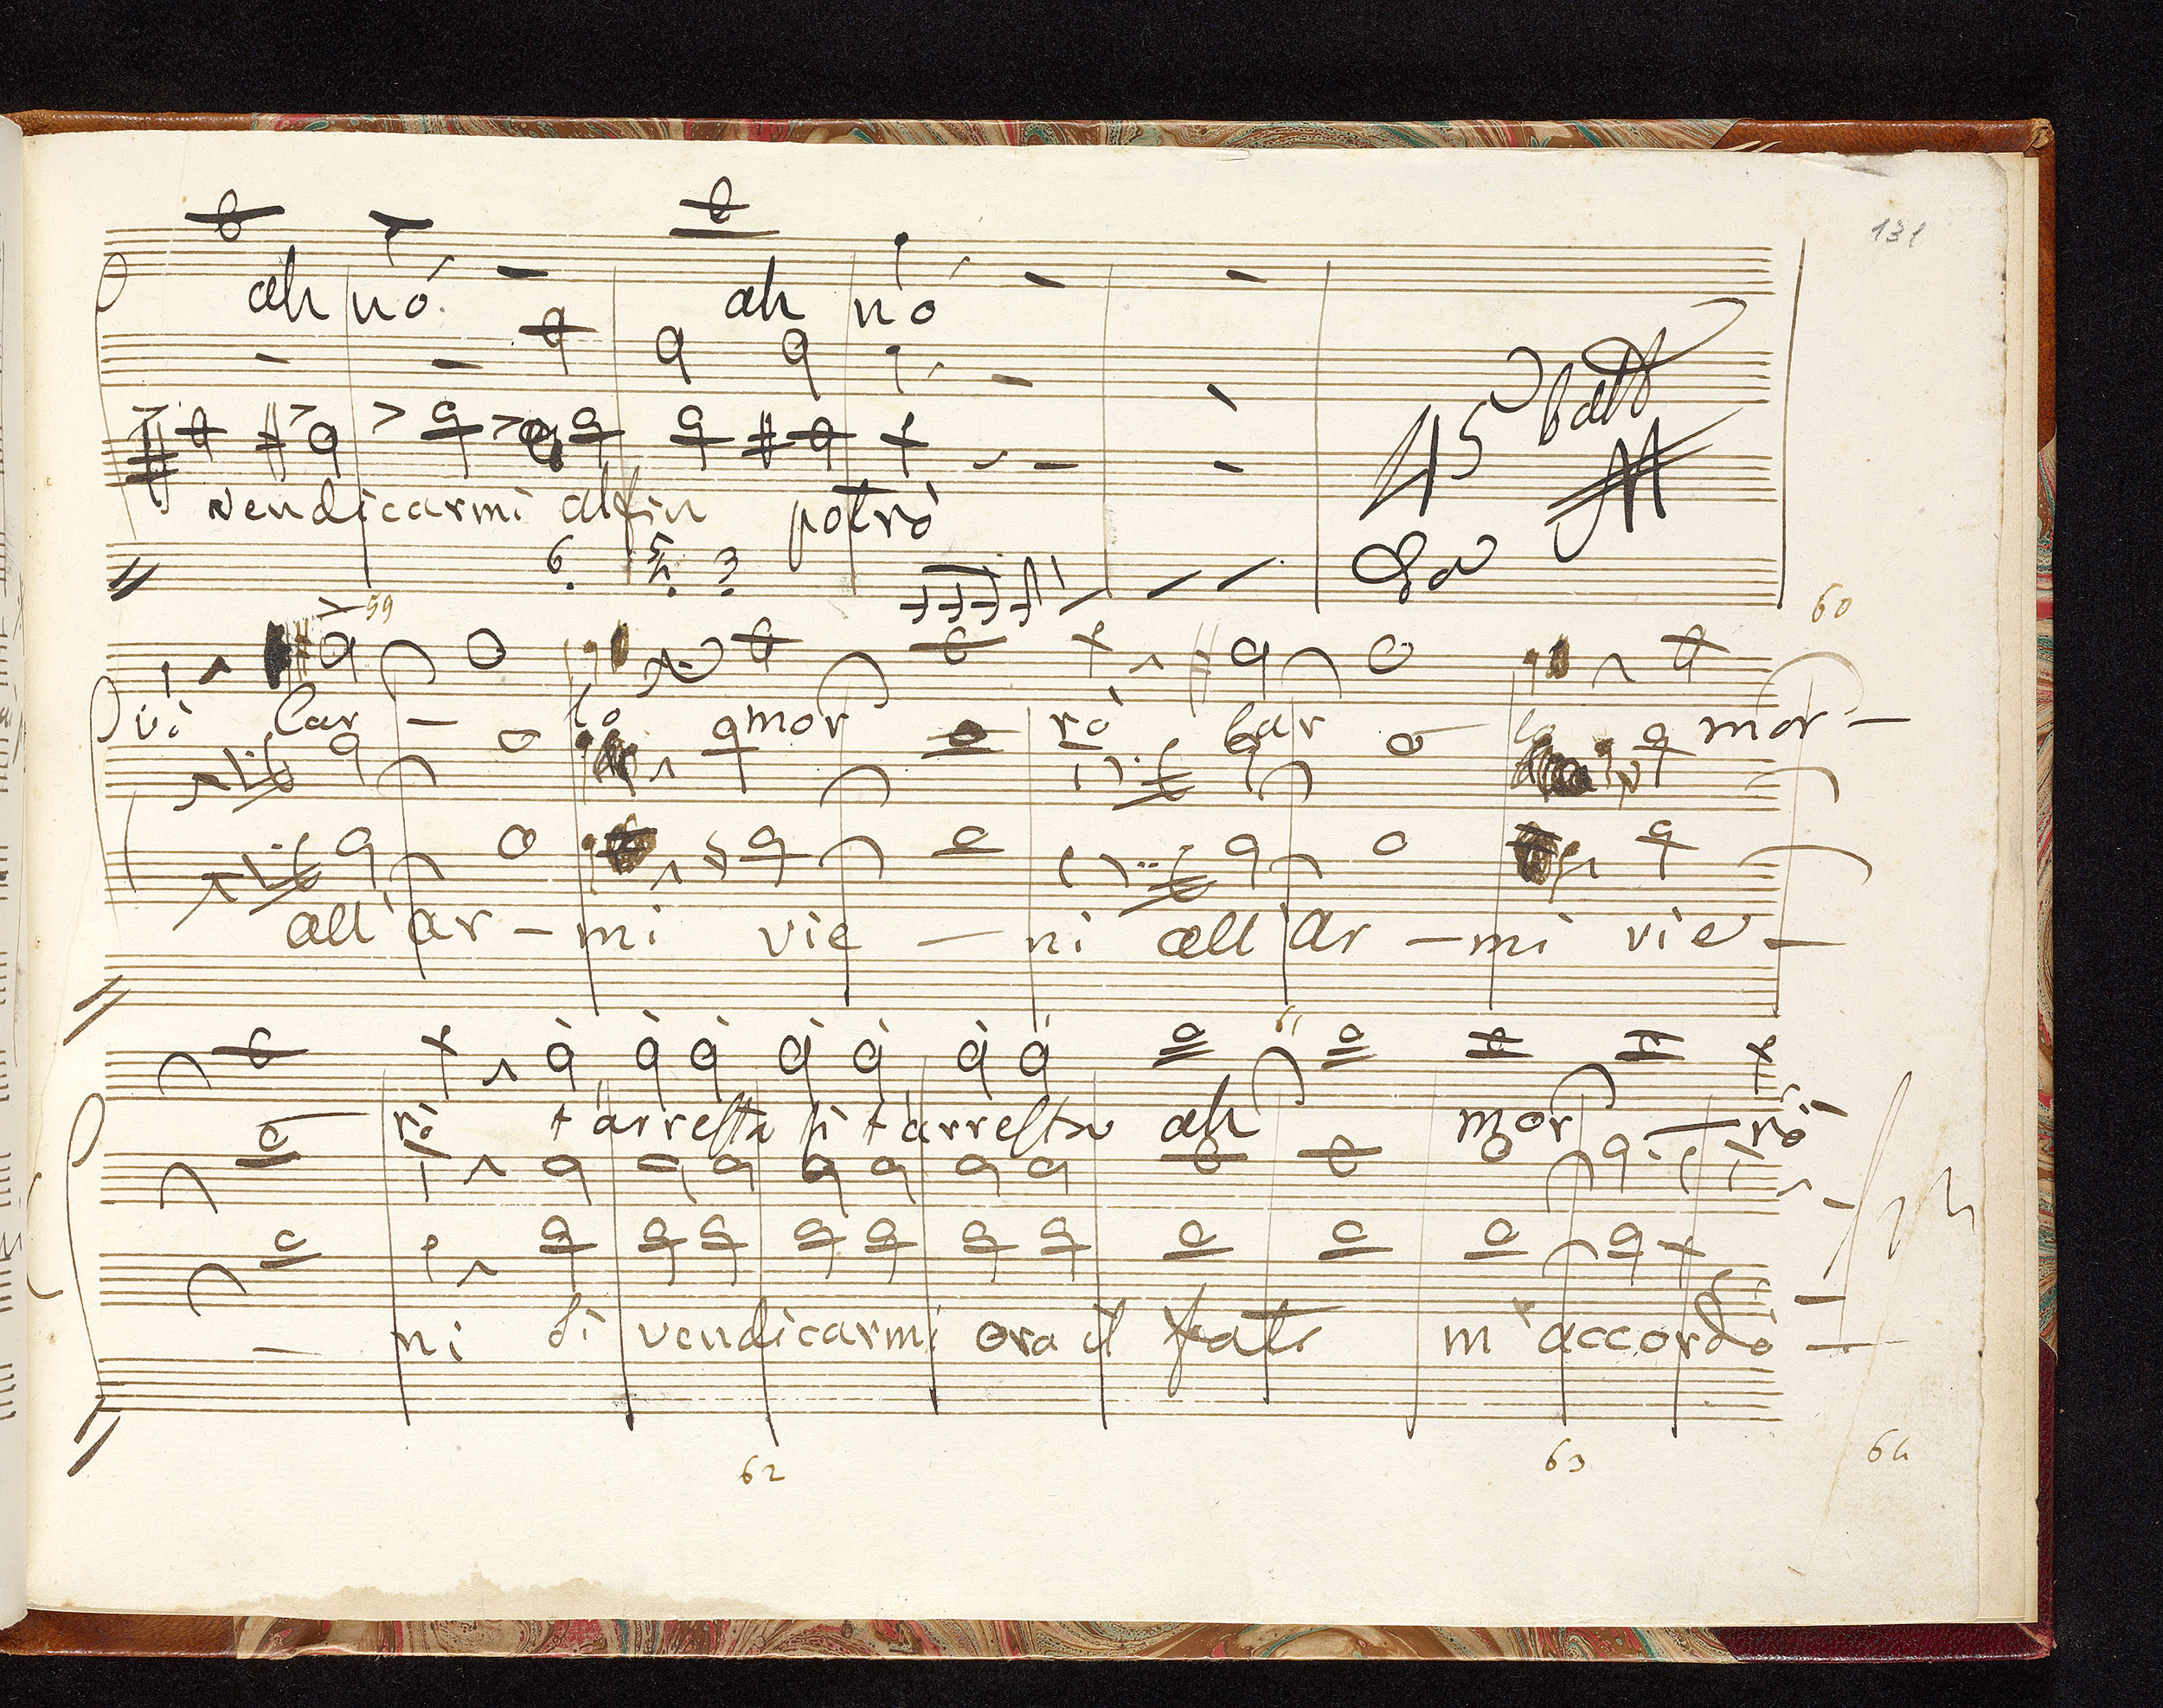 131
ah nò ah nò
45 batt
vendicarmi alfin potrò
6 5 3
Da
59 60
vò Car - lo mor rò Car - lo mor -
all' ar - mi vie - ni all' Ar - mi vie -
61
rò t'arresta sì t'arresta ah mor - rò
- ni di vendicarmi ora il fato m'accordò -
62 63 64